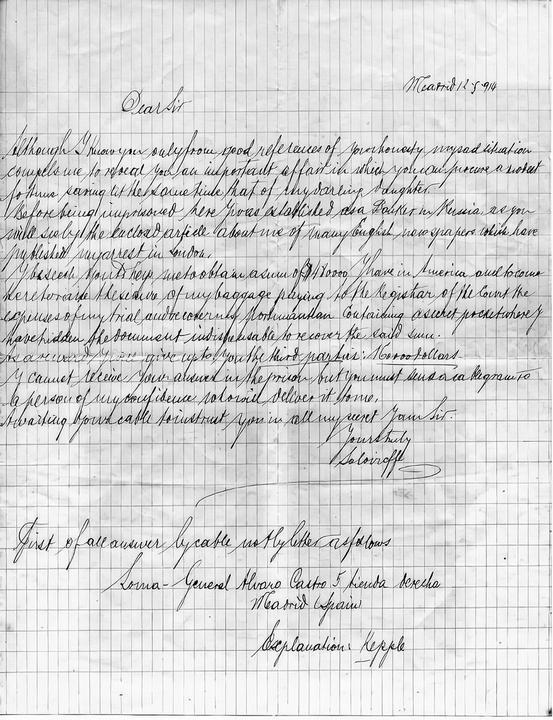 Madrid 12 5 914
Dear Sir
Although I know you only from good references of your honesty my sad situation
compels me to reveal you an important affair in which you can procure a modest
fortune saving at the same time that of my darling daughter.
Before being imprisoned here I was established as a Banker in Russia as you
will see by the enclosed article about me of many English newspapers which have
published my arrest in London.
I beseech you to help me to obtain a sum of 480000 I have in America and to come
here to raise the seizure of my baggage paying to the Registrar of the Court the
expenses of my trial and recover my portmanteau containing a secret pocket where I
have hidden the document indispensable to recover the said sum.
As a reward I will give up to you the third part is: 160000 dollars.
I cannot receive your answer in the prison but you must send a cablegram to
a person of my confidence who will deliver it to me.
Awaiting your cable to instruct you in all my secret I am Sir.
Yours truly
First of all answer by cable not by letter as follows
General Alvaro Castro 5 tienda derecha
Madrid (Spain)
Explanation: Kepple